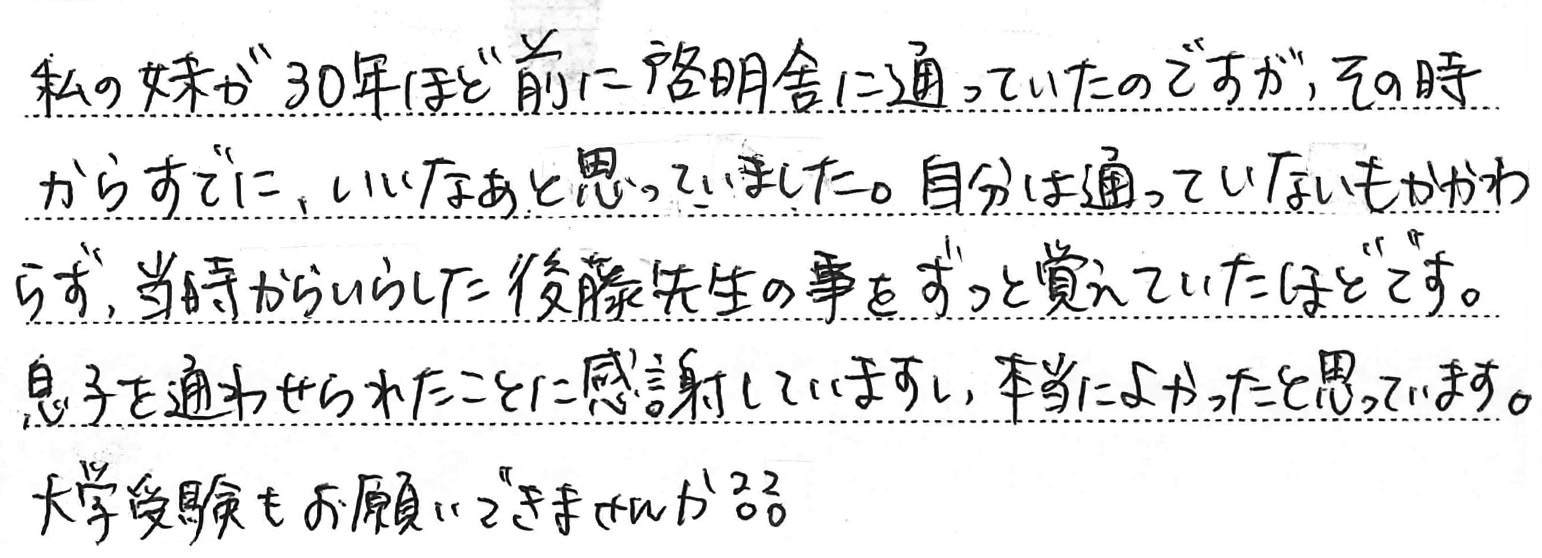 私の妹が30年ほど前に啓明舎に通っていたのですが、その時
からすでに、いいなあと思っていました。自分は通っていないもかかわ
らず、当時からいらした後藤先生の事をずっと覚えていたほどです。
息子を通わせられたことに感謝していますし、本当によかったと思っています。
大学受験もお願いできませんか??